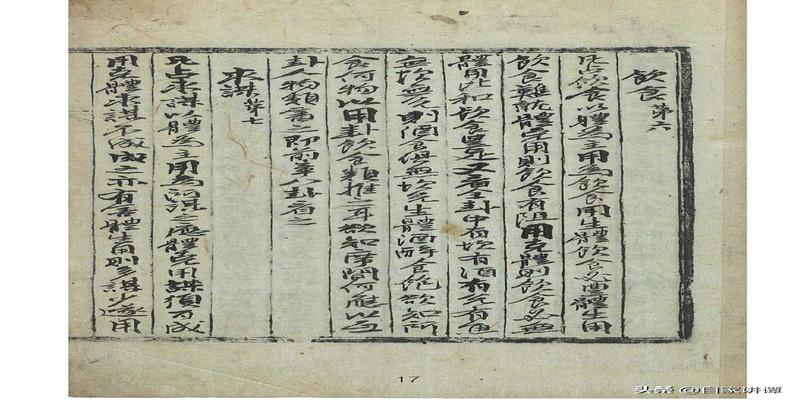 飲食 第六
凡占飲食以體為主用為飲食用生體飲食必豐體生用
飲食難就體克用則飲食有阻用克體則飲食必無
體用比和飲食豐足又看卦中有坎有酒有兌有食
無坎無兌則酒食俱無坎兌生體酒醉食飽欲知所
食何物以用卦飲食類推之耳欲知席間何應以互
卦人物類看之即前章八卦看之
求謀 第七
凡占求謀以體為主用為所謀之應體克用謀須可成
用克體求謀不成成之亦有害體生用則多謀少遂用
17
头条 @自家讲谭